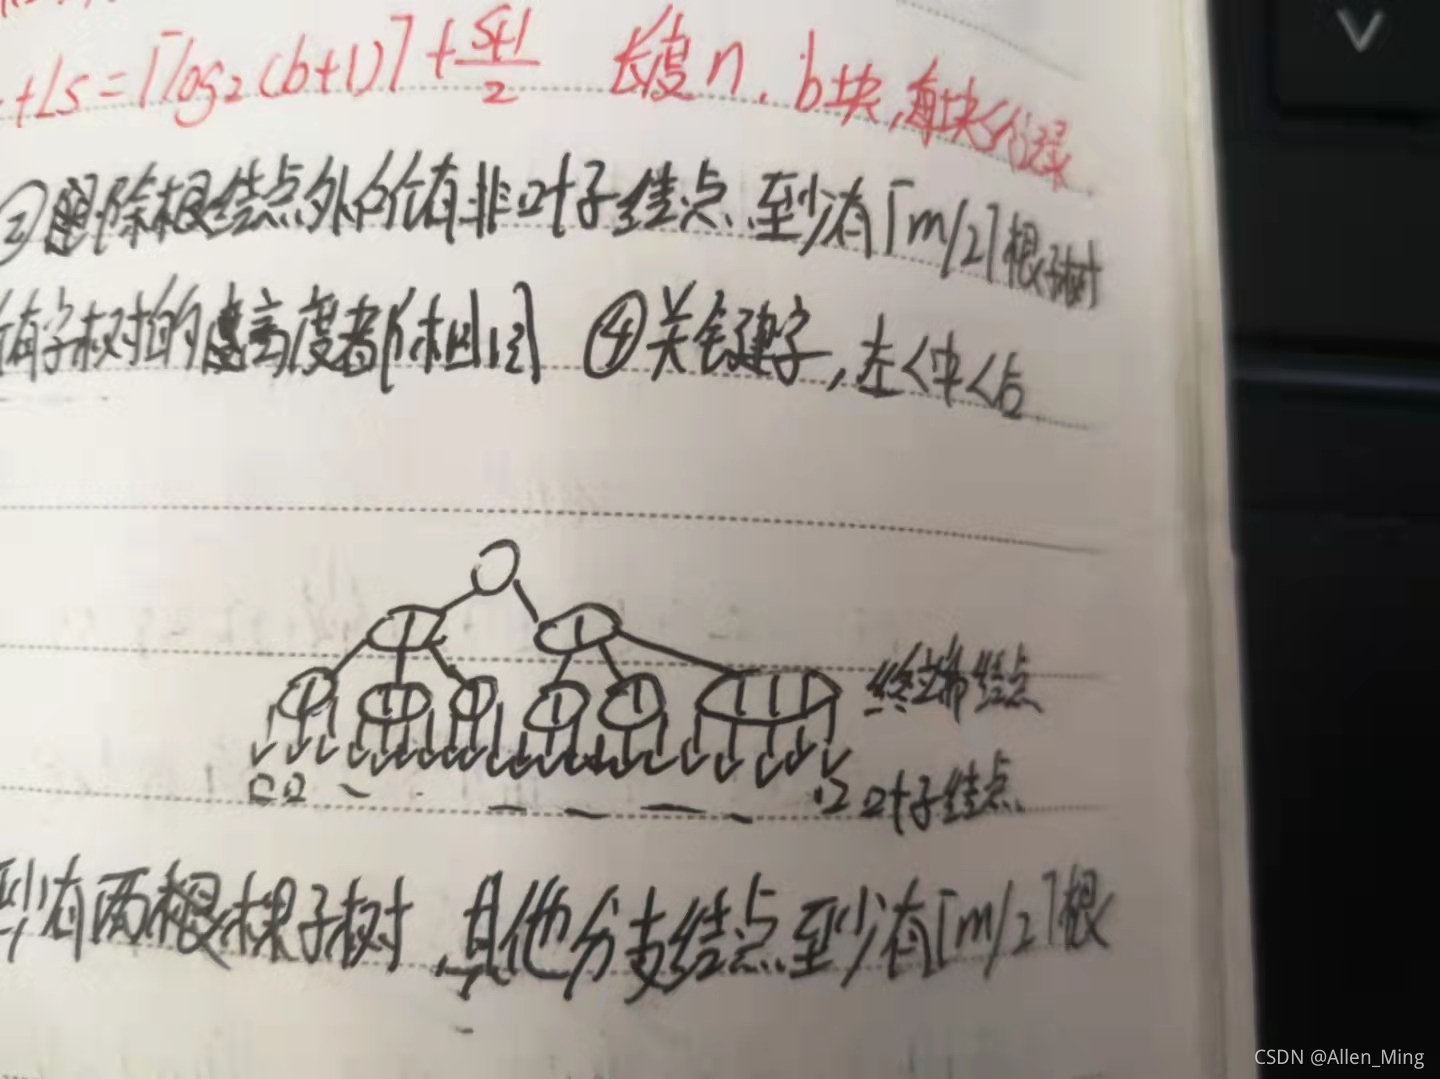 +Ls=⌈log₂(b+1)⌉+(s+1)/2 长度n, b块,每块s个记录
②除根结点外所有非叶子结点、至少有⌈m/2⌉根子树
有子树的高度都相同 ④关键字,左<中<右
终端结点
叶子结点
至少有两棵子树,其他分支结点至少有⌈m/2⌉根
CSDN @Allen_Ming